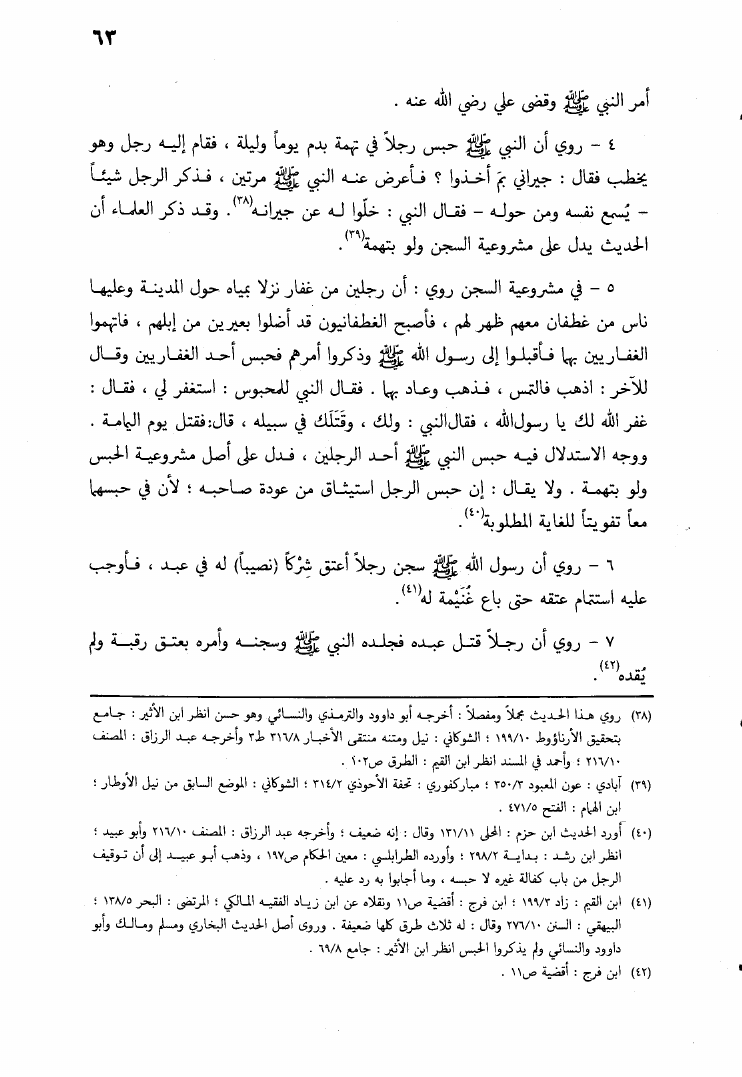 ٦٣
أمر النبي ﷺ وقضى علي رضي الله عنه .
٤ – روي أن النبي ﷺ حبس رجلاً في تهمة بدم يوماً وليلة ، فقام إليه رجل وهو
يخطب فقال : جيراني بمَ أخذوا ؟ فأعرض عنه النبي ﷺ مرتين ، فذكر الرجل شيئاً
– يُسمع نفسه ومن حوله – فقال النبي : خلّوا له عن جيرانه(٣٨). وقد ذكر العلماء أن
الحديث يدل على مشروعية السجن ولو بتهمة(٣٩).
٥ – في مشروعية السجن روي : أن رجلين من غفار نزلا بمياه حول المدينة وعليها
ناس من غطفان معهم ظهر لهم ، فأصبح الغطفانيون قد أضلوا بعيرين من إبلهم ، فاتهموا
الغفاريين بها فأقبلوا إلى رسول الله ﷺ وذكروا أمرهم فحبس أحد الغفاريين وقال
للآخر : اذهب فالتمس ، فذهب وعاد بها . فقال النبي للمحبوس : استغفر لي ، فقال :
غفر الله لك يا رسول الله ، فقال النبي : ولك ، وقَتَلك في سبيله ، قال: فقتل يوم اليمامة .
ووجه الاستدلال فيه حبس النبي ﷺ أحد الرجلين ، فدل على أصل مشروعية الحبس
ولو بتهمة . ولا يقال : إن حبس الرجل استيثاق من عودة صاحبه ؛ لأن في حبسهما
معاً تفويتاً للغاية المطلوبة(٤٠).
٦ – روي أن رسول الله ﷺ سجن رجلاً أعتق شِرْكاً (نصيباً) له في عبد ، فأوجب
عليه استتمام عتقه حتى باع غُنَيْمة له(٤١).
٧ – روي أن رجلاً قتل عبده فجلده النبي ﷺ وسجنه وأمره بعتق رقبة ولم
يُقده(٤٢).
(٣٨) روي هذا الحديث مجملاً ومفصلاً : أخرجه أبو داوود والترمذي والنسائي وهو حسن انظر ابن الأثير : جامع
بتحقيق الأرناؤوط ١٩٩/١٠ ؛ الشوكاني : نيل ومتنه منتقى الأخبار ٣١٦/٨ ط٣ وأخرجه عبد الرزاق : المصنف
٢١٦/١٠ ؛ وأحمد في المسند انظر ابن القيم : الطرق ص١٠٢ .
(٣٩) آبادي : عون المعبود ٣٥٠/٣ ؛ مباركفوري : تحفة الأحوذي ٣١٤/٢ ؛ الشوكاني : الموضع السابق من نيل الأوطار ؛
ابن الهمام : الفتح ٤٧١/٥ .
(٤٠) أورد الحديث ابن حزم : المحلى ١٣١/١١ وقال : إنه ضعيف ؛ وأخرجه عبد الرزاق : المصنف ٢١٦/١٠ وأبو عبيد ؛
انظر ابن رشد : بداية ٢٩٨/٢ ؛ وأورده الطرابلسي : معين الحكام ص١٩٧ ، وذهب أبو عبيد إلى أن توقيف
الرجل من باب كفالة غيره لا حبسه ، وما أجابوا به رد عليه .
(٤١) ابن القيم : زاد ١٩٩/٢ ؛ ابن فرج : أقضية ص١١ ونقلاه عن ابن زياد الفقيه المالكي ؛ المرتضى : البحر ١٣٨/٥ ؛
البيهقي : السنن ٢٧٦/١٠ وقال : له ثلاث طرق كلها ضعيفة . وروى أصل الحديث البخاري ومسلم ومالك وأبو
داوود والنسائي ولم يذكروا الحبس انظر ابن الأثير : جامع ٦٩/٨ .
(٤٢) ابن فرج : أقضية ص١١ .